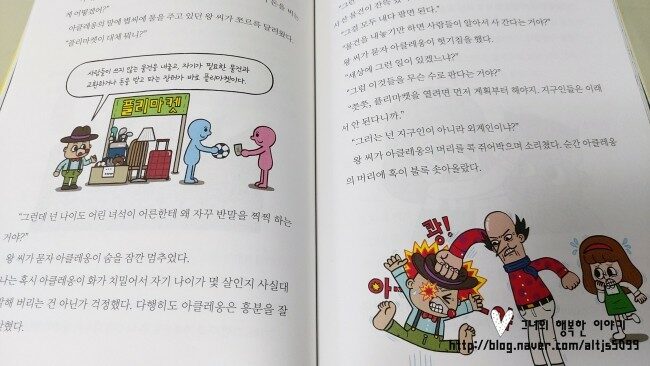 게 어떻겠어?"
아클레옹의 말에 벌써에 물을 주고 있던 왕 씨가 쪼르륵 달려왔다.
"플리마켓이 대체 뭐니?"
사람들이 쓰지 않는 물건을 내놓고, 자기가 필요한 물건과
교환하거나 돈을 받고 파는 장터가 바로 플리마켓이다.
플리마켓
"그런데 넌 나이도 어린 녀석이 어른한테 왜 자꾸 반말을 찍찍 하는
거야?"
왕 씨가 묻자 아클레옹이 숨을 잠깐 멈추었다.
나는 혹시 아클레옹이 화가 치밀어서 자기 나이가 몇 살인지 사실대
해 버리는 건 아닌가 걱정했다. 다행히도 아클레옹은 흥분을 잘
"그걸 모두 내다 팔면 된다."
"물건을 내놓기만 하면 사람들이 알아서 사 간다는 거야?"
왕 씨가 묻자 아클레옹이 헛기침을 했다.
"세상에 그런 일이 있겠느냐?"
"그럼 이것들을 무슨 수로 판다는 거야?"
"쯧쯧, 플리마켓을 열려면 먼저 계획부터 해야지. 지구인들은 이래
서 안 된다니까."
"그러는 넌 지구인이 아니라 외계인이냐?"
왕 씨가 아클레옹의 머리를 콕 쥐어박으며 소리쳤다. 순간 아클레옹
의 머리에 혹이 볼록 솟아올랐다.
쾅!
아
그녀의 행복한 이야기
http://blog.naver.com/altjs5099